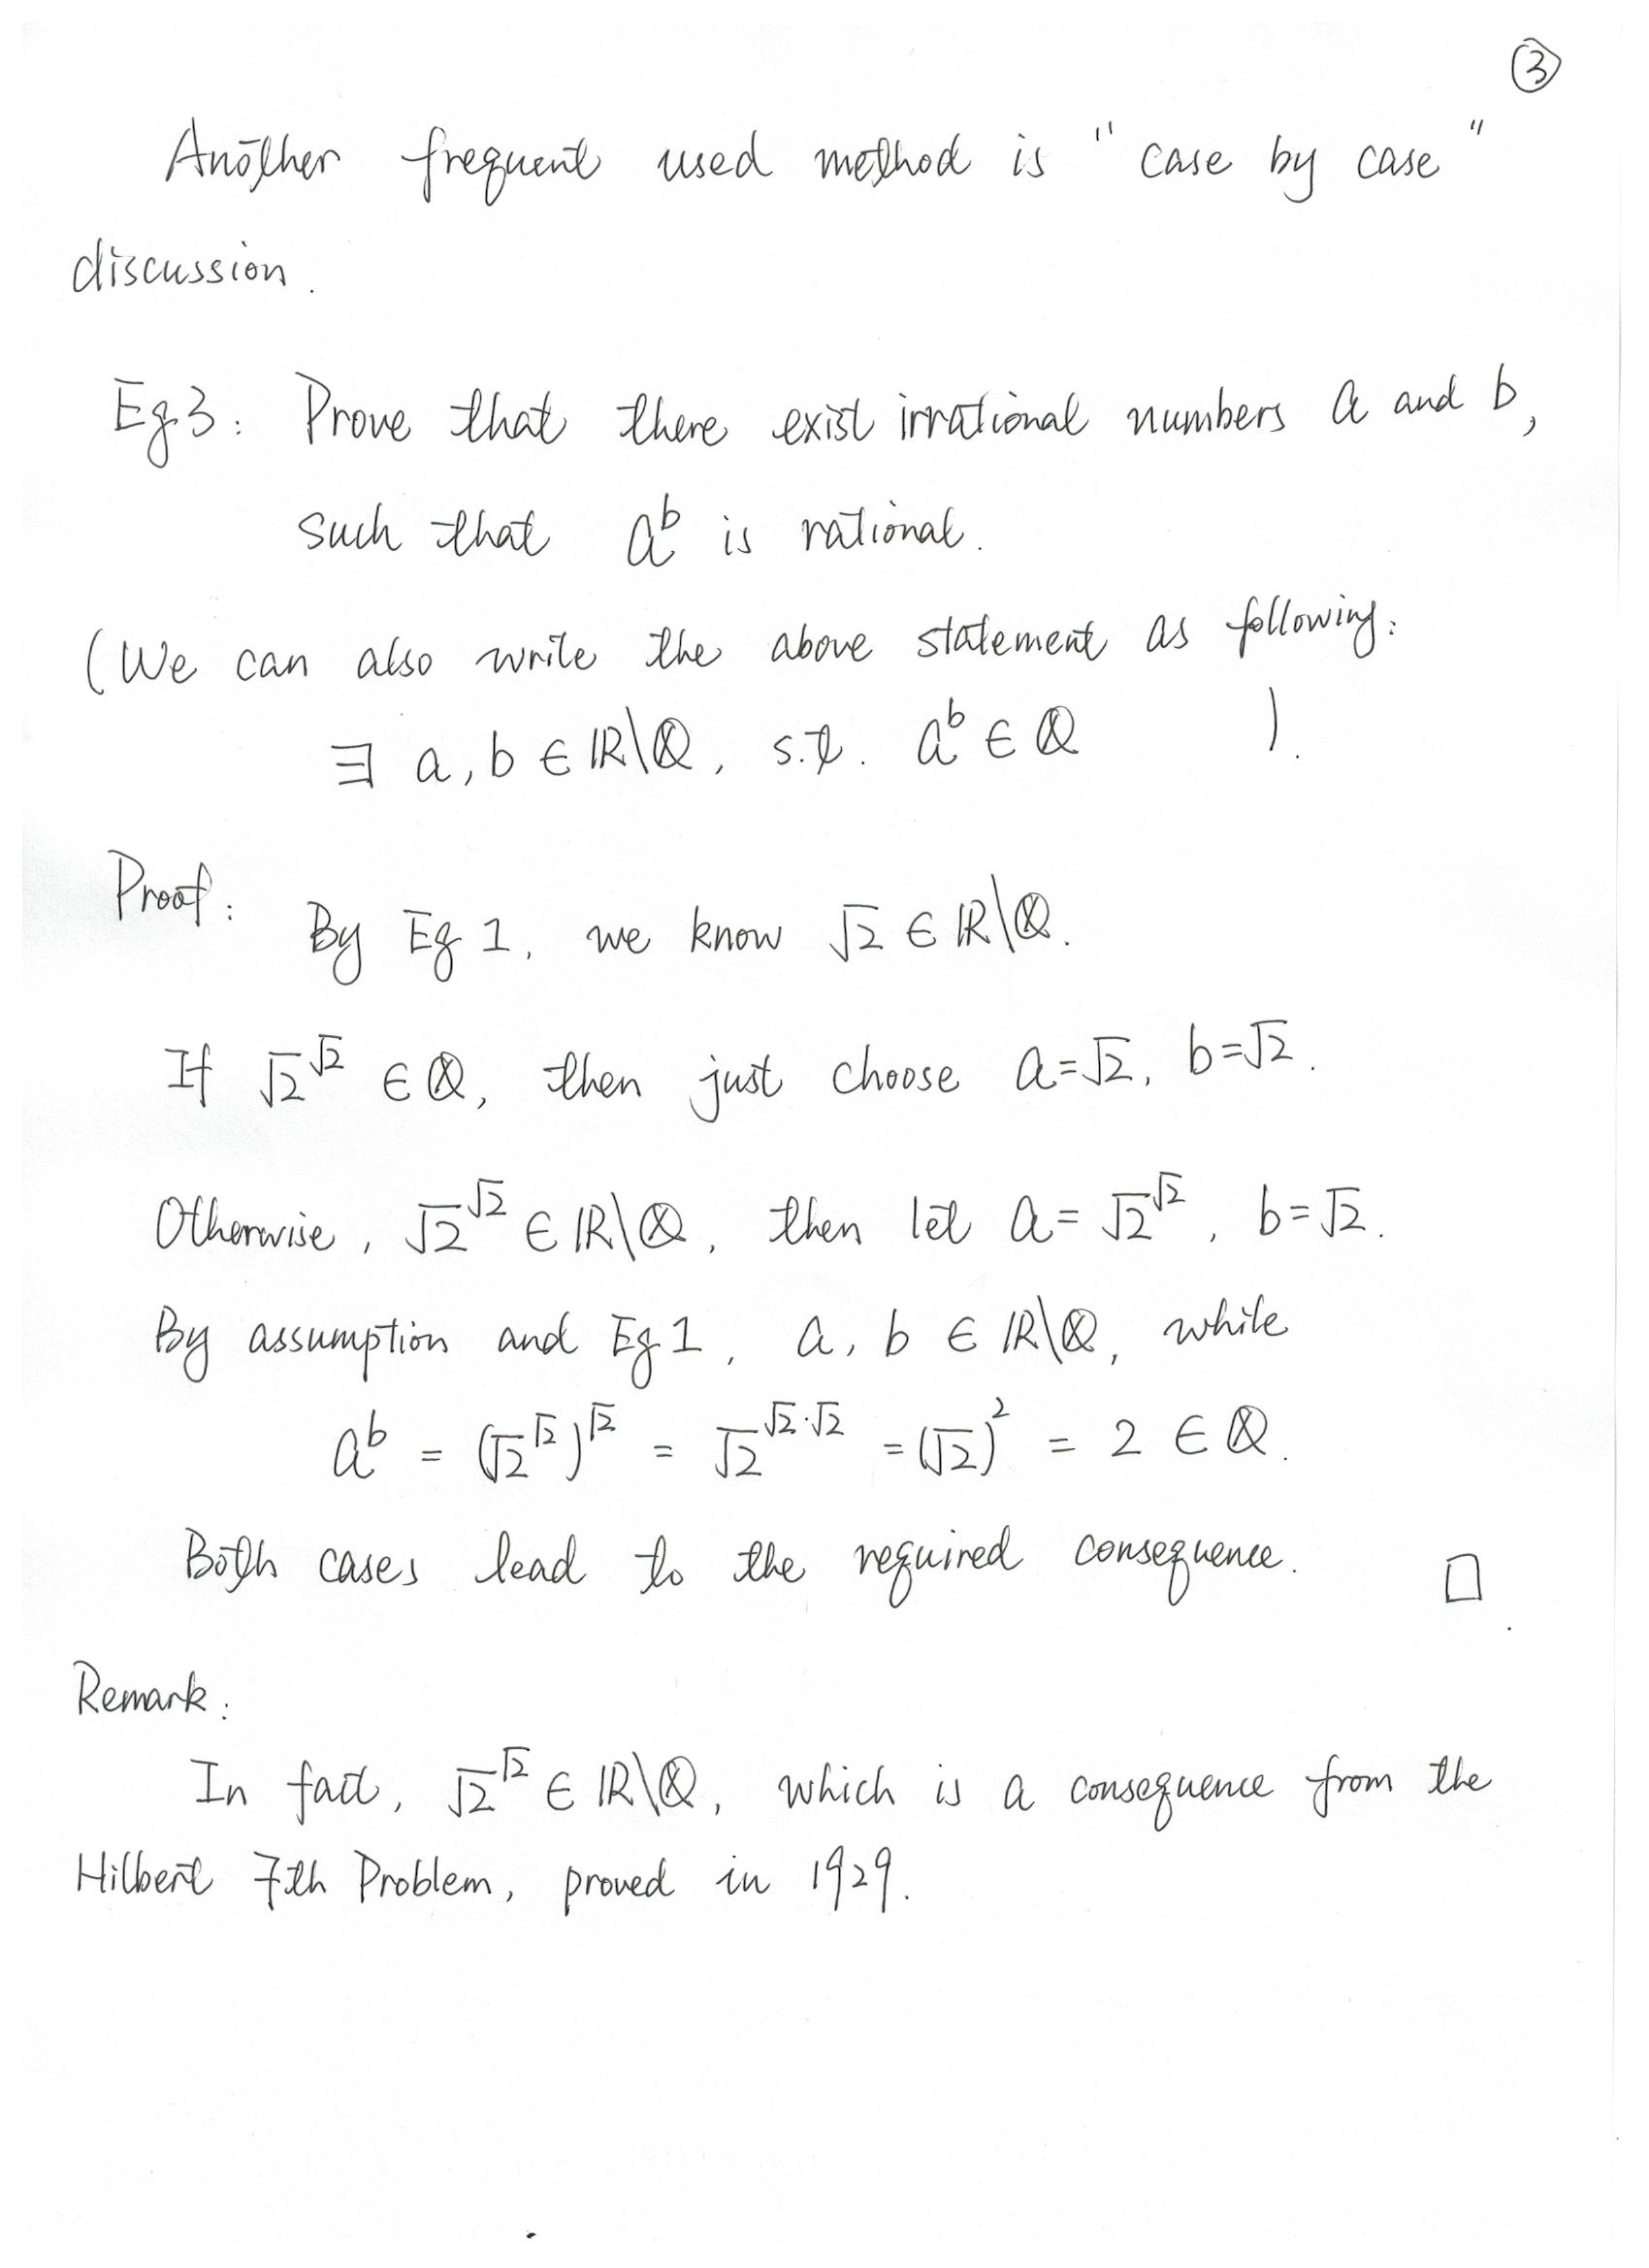 ③
Another frequent used method is "case by case"
discussion.
Eg3: Prove that there exist irrational numbers a and b,
such that a^b is rational.
(We can also write the above statement as following:
∃ a, b ∈ ℝ\ℚ, s.t. a^b ∈ ℚ ).
Proof:
By Eg 1, we know √2 ∈ ℝ\ℚ.
If √2^√2 ∈ ℚ, then just choose a=√2, b=√2.
Otherwise, √2^√2 ∈ ℝ\ℚ, then let a= √2^√2, b=√2.
By assumption and Eg 1, a, b ∈ ℝ\ℚ, while
a^b = (√2^√2)^√2 = √2^(√2·√2) = (√2)^2 = 2 ∈ ℚ.
Both cases lead to the required consequence. □.
Remark:
In fact, √2^√2 ∈ ℝ\ℚ, which is a consequence from the
Hilbert 7th Problem, proved in 1929.